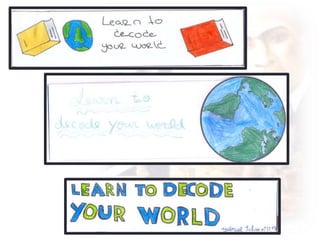 Learn to
decode
your world
Learn to
decode your world
LEARN TO DECODE
YOUR WORLD